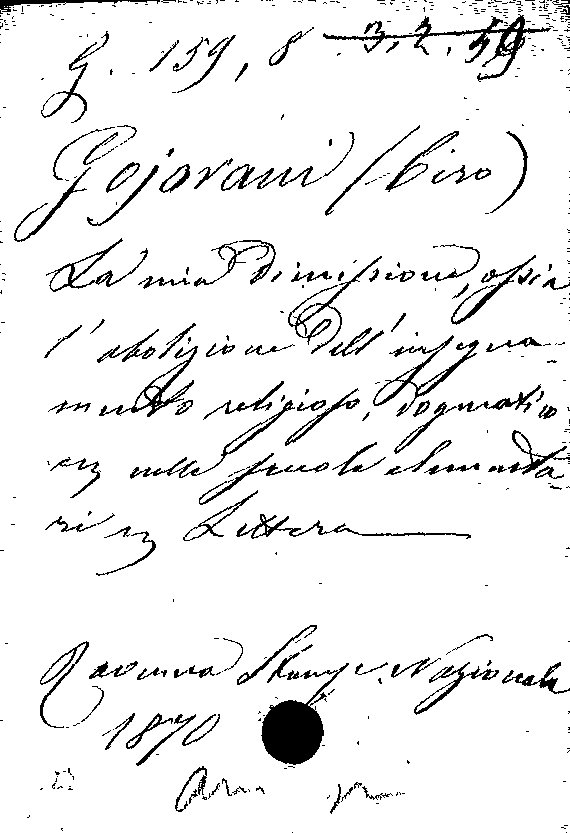 G. 159, 8 3.2.59
Gojarani (Ciro)
La mia Dimissione, ossia
l'abolizione dell'insegna-
mento religioso, dogmatico
nelle scuole elementa-
ri Lettera
Ravenna Stamp. Nazionale
1870